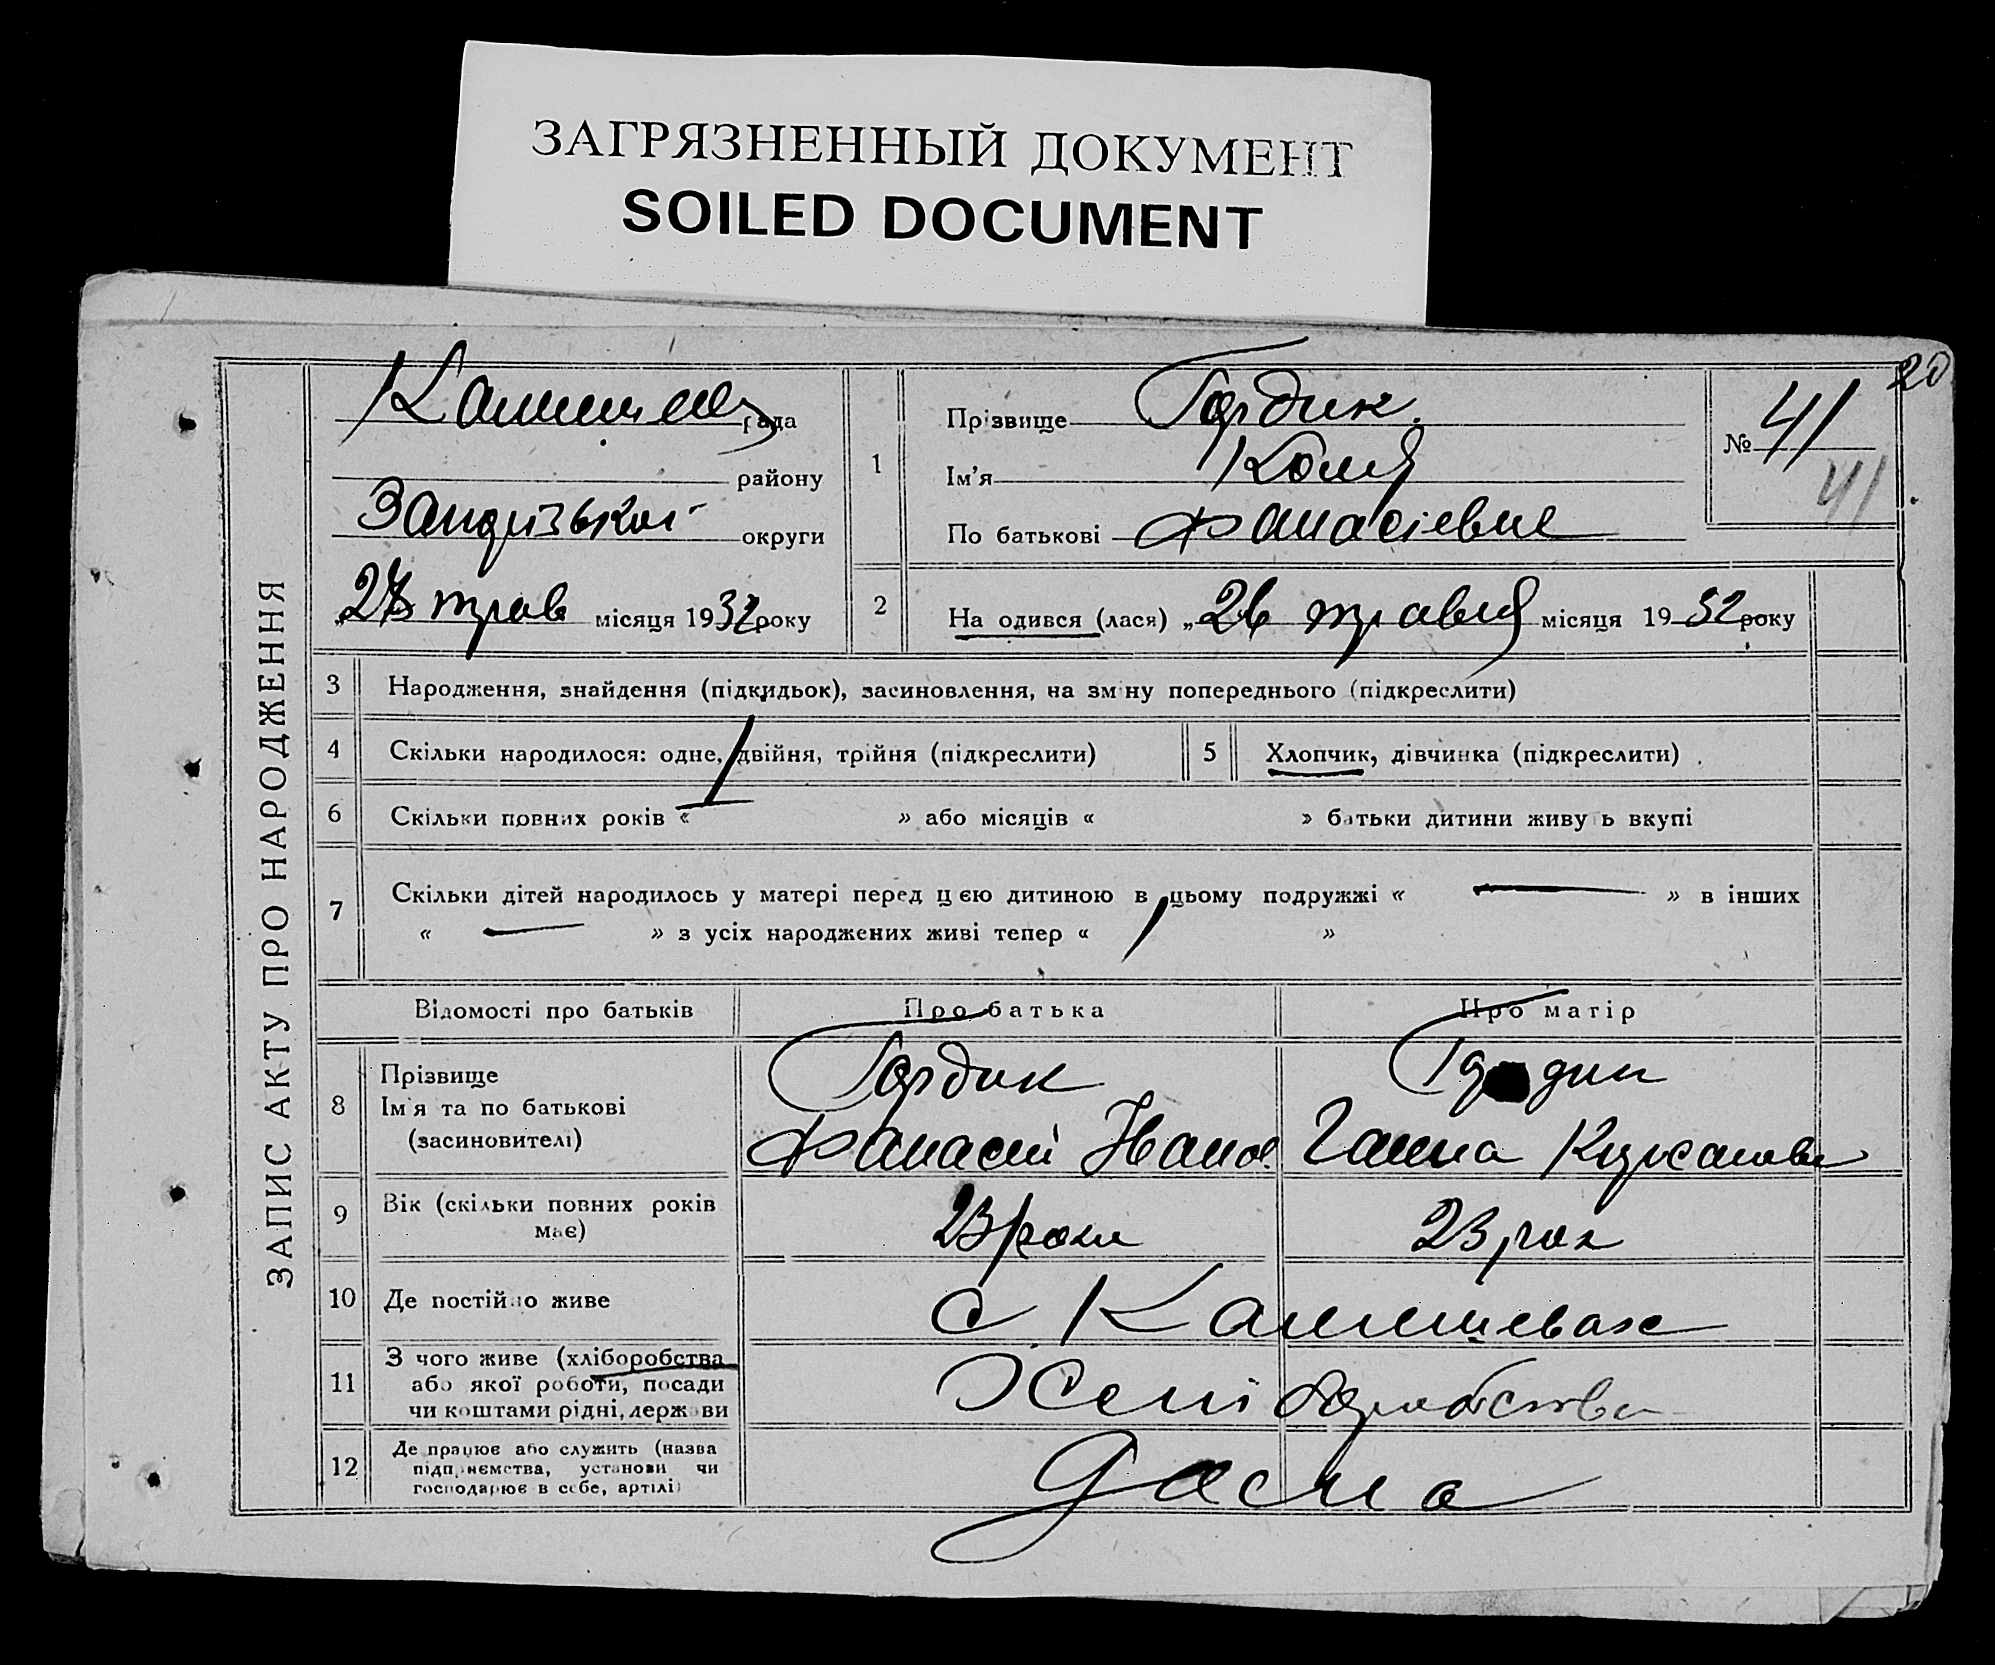 ЗАГРЯЗНЕННЫЙ ДОКУМЕНТ
SOILED DOCUMENT
20
ЗАПИС АКТУ ПРО НАРОДЖЕННЯ
рада
району
округи
„27 трав місяця 1932 року
1
Прізвище Гордик.
Ім'я Коля
По батькові Фанасієвич
№ 41
41
2
Народився (лася) „26 травня місяця 1932 року
3 Народження, знайдення (підкидьок), засиновлення, на зміну попереднього (підкреслити)
4 Скільки народилося: одне, двійня, трійня (підкреслити)
5 Хлопчик, дівчинка (підкреслити)
6 Скільки повних років « » або місяців « » батьки дитини живуть вкупі
7 Скільки дітей народилось у матері перед цією дитиною в цьому подружжі « — » в інших
« — » з усіх народжених живі тепер « »
Відомості про батьків Про батька Про матір
8 Прізвище
Ім'я та по батькові
(засиновителі)
Гордик
Фанасій Іванов
Гордик
Ганна
9 Вік (скільки повних років
має)
23 роки
23 рок
10 Де постійно живе
с Камишевах
11 З чого живе (хліборобства
або якої роботи, посади
чи коштами рідні, держави
Хліборобства
12 Де працює або служить (назва
підприємства, установи чи
господарює в себе, артілі)